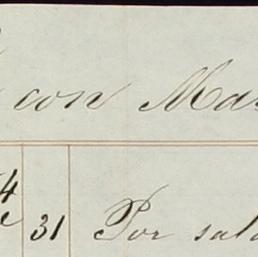 con Ma
4
31 Por sal